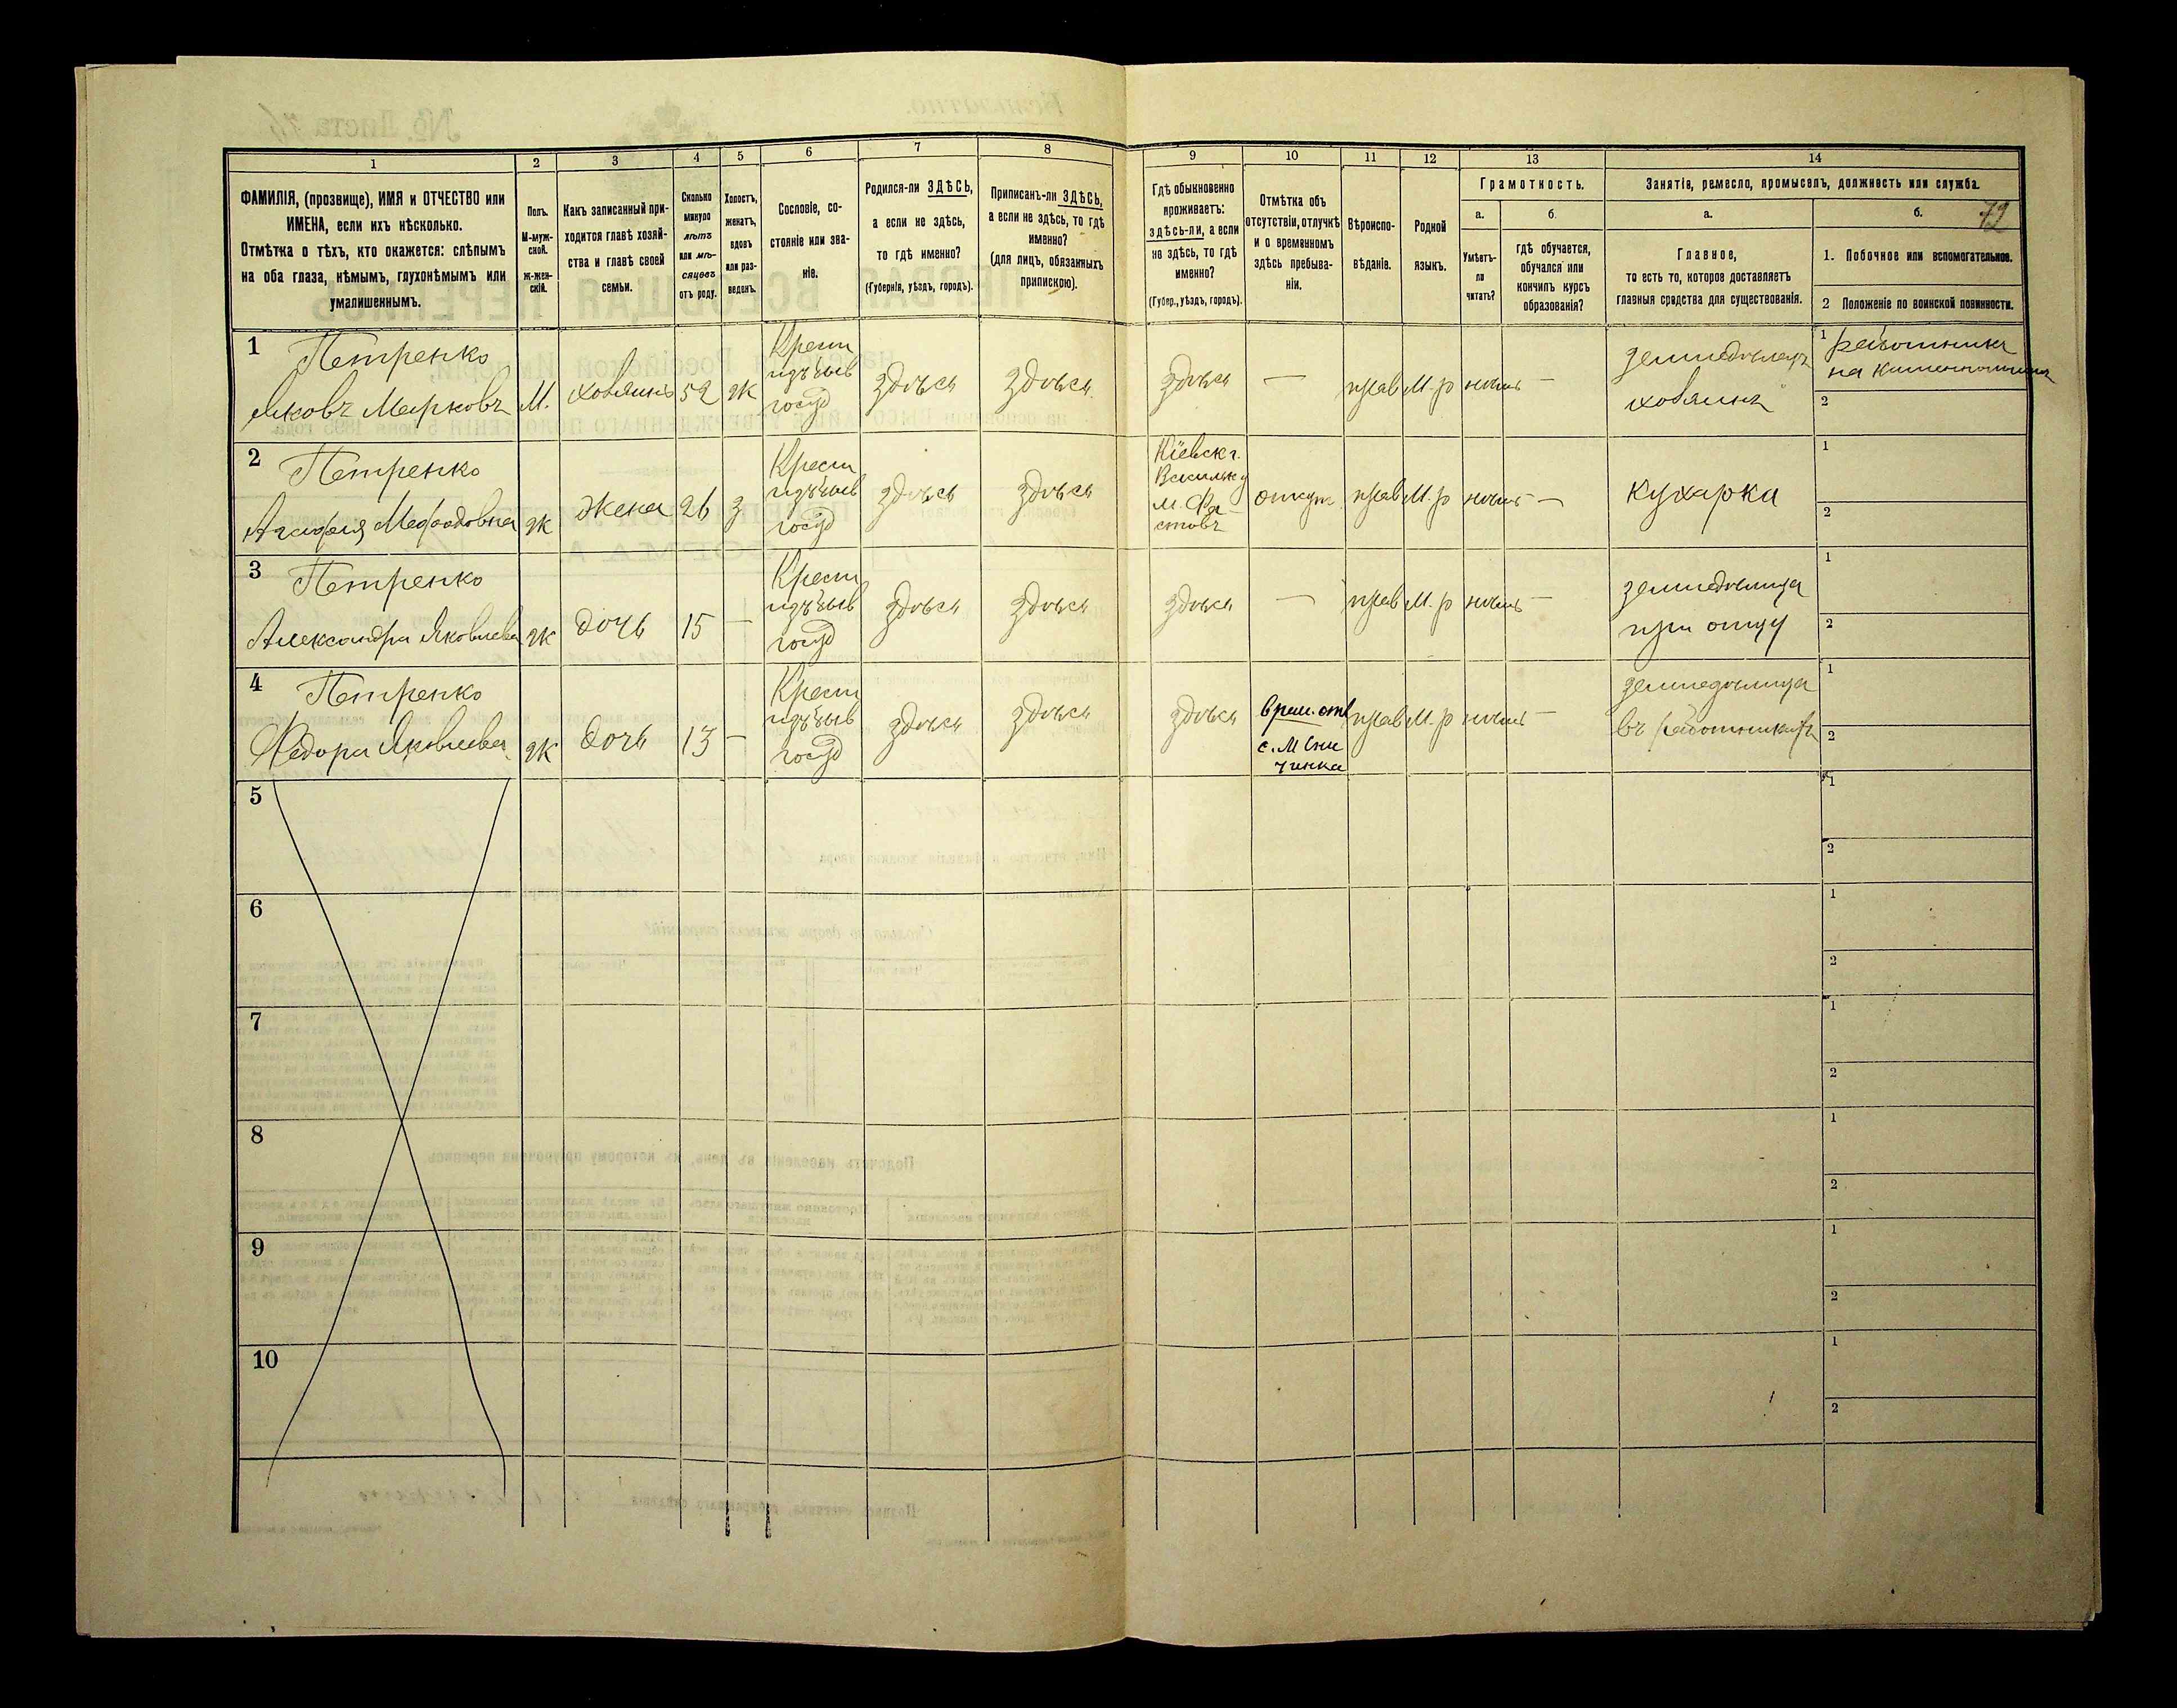 72
1 2 3 4 5 6 7 8 9 10 11 12 13 14
ФАМИЛІЯ, (прозвище), ИМЯ и ОТЧЕСТВО или
ИМЕНА, если ихъ нѣсколько.
Отмѣтка о тѣхъ, кто окажется: слѣпымъ
на оба глаза, нѣмымъ, глухонѣмымъ или
умалишеннымъ.
Полъ.
М-муж-
ской.
Ж-жен-
скій.
Какъ записанный при-
ходится главѣ хозяй-
ства и главѣ своей
семьи.
Сколько
минуло
лѣтъ
или мѣ-
сяцевъ
отъ роду.
Холостъ,
женатъ,
вдовъ
или раз-
веденъ.
Сословіе, со-
стояніе или зва-
ніе.
Родился-ли ЗДѢСЬ,
а если не здѣсь,
то гдѣ именно?
(Губернія, уѣздъ, городъ).
Приписанъ-ли ЗДѢСЬ,
а если не здѣсь, то гдѣ
именно?
(для лицъ, обязанныхъ
припискою).
Гдѣ обыкновенно
проживаетъ:
здѣсь-ли, а если
не здѣсь, то гдѣ
именно?
(Губер., уѣздъ, городъ).
Отмѣтка объ
отсутствіи, отлучкѣ
и о временномъ
здѣсь пребыва-
ніи.
Вѣроиспо-
вѣданіе.
Родной
языкъ.
Грамотность.
а.
Умѣетъ-
ли
читать?
б.
гдѣ обучается,
обучался или
кончилъ курсъ
образованія?
Занятіе, ремесло, промыселъ, должность или служба.
а.
Главное,
то есть то, которое доставляетъ
главныя средства для существованія.
б.
1. Побочное или вспомогательное.
2 Положеніе по воинской повинности.
1
Петренко
Яковъ Марковъ
М.
хозяинъ
52
ж
Крест
изъ быв
госуд
здѣсь
здѣсь
здѣсь
—
прав
М. р
нѣтъ
—
земледѣлецъ
хозяинъ
1
работникъ
2
2
Петренко
Агафія Мефодовна
ж
жена
26
з
Крест
изъ быв
госуд
здѣсь
здѣсь
Кіевск г.
Васильк у
м. Фа-
стовъ
отсут
прав
М. р
нѣтъ
—
кухарка
1
2
3
Петренко
Александра Яковлева
ж
дочь
15
—
Крест
изъ быв
госуд
здѣсь
здѣсь
здѣсь
—
прав
М. р
нѣтъ
—
земледѣлица
при отцу
1
2
4
Петренко
Федора Яковлева
ж
дочь
13
—
Крест
изъ быв
госуд
здѣсь
здѣсь
здѣсь
врем. отл
прав
М. р
нѣтъ
—
земледѣлица
въ работникахъ
1
2
5
1
2
6
1
2
7
1
2
8
1
2
9
1
2
10
1
2